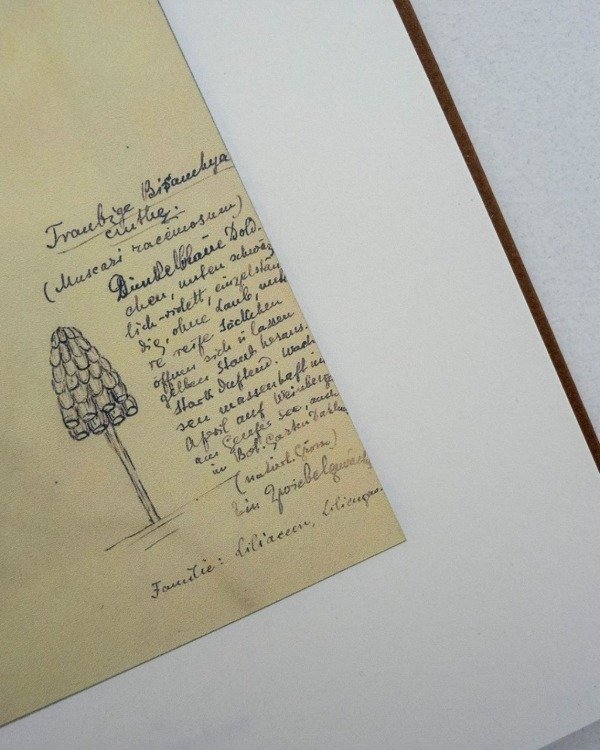 Traubige Bisamhya
cinthe.
(Muscari racemosum)
Dunkelblaue Dold-
chen, unten schwärz
lich-violett, einzelstän
dig, ohne Laub, unte
re reife Säckchen
öffnen sich u lassen
gelben Staub heraus.
Stark duftend. Wach
sen massenhaft im
April auf Weinbergen
am Genfer see, auch
in Bot. Garten
(natürl. Grösse)
Ein Zwiebelgewächs
Familie: Liliaceen,